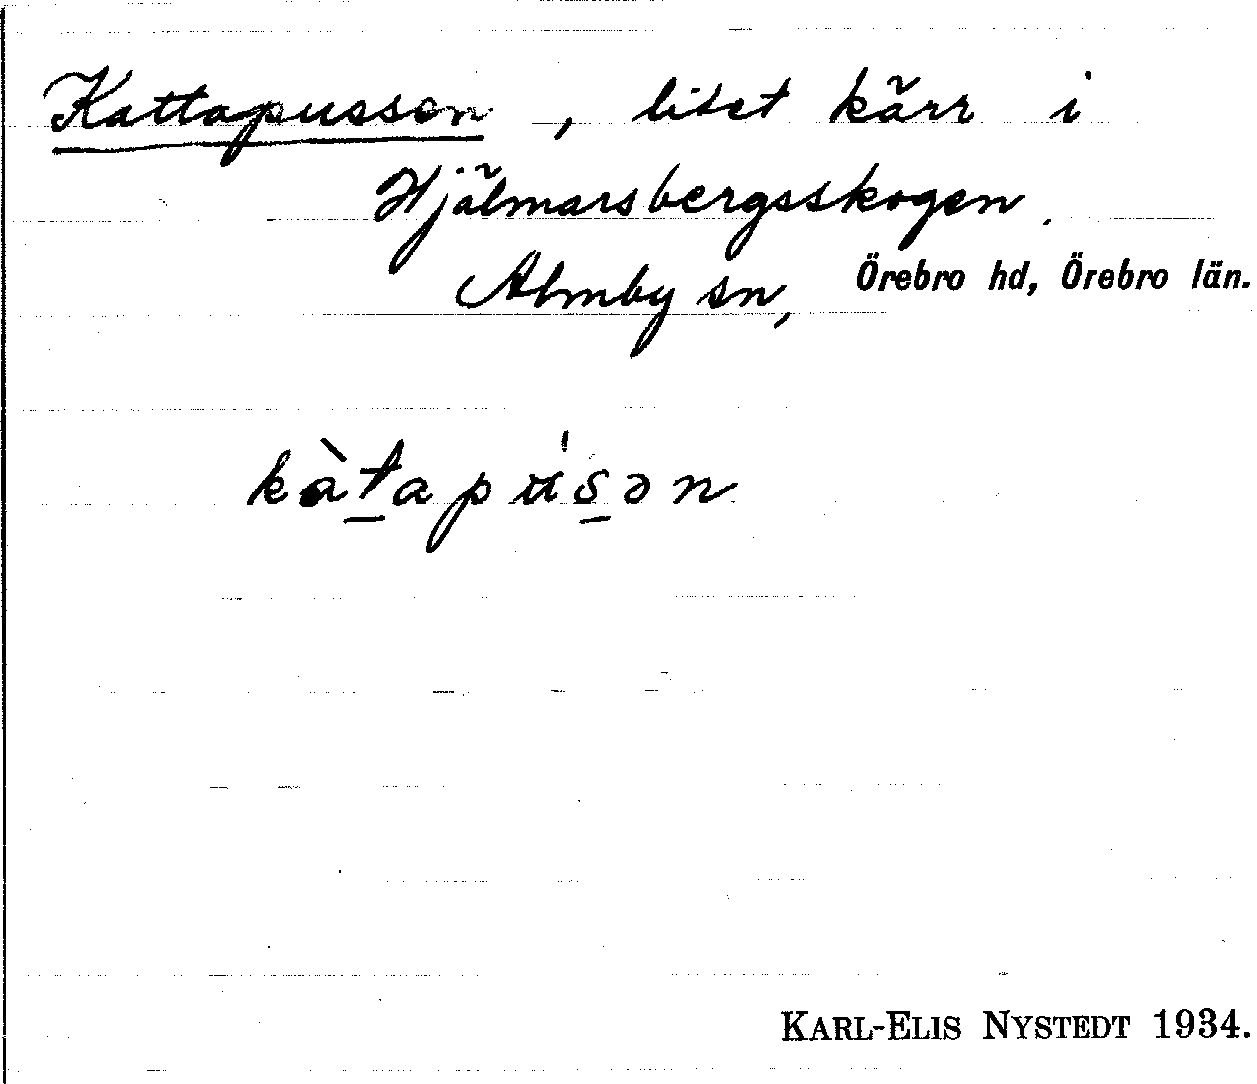 Kattapussen, litet kärr i
Hjälmarsbergsskogen.
Almby sn, Örebro hd, Örebro län.
kàt̠apús̠ən
KARL-ELIS NYSTEDT 1934.